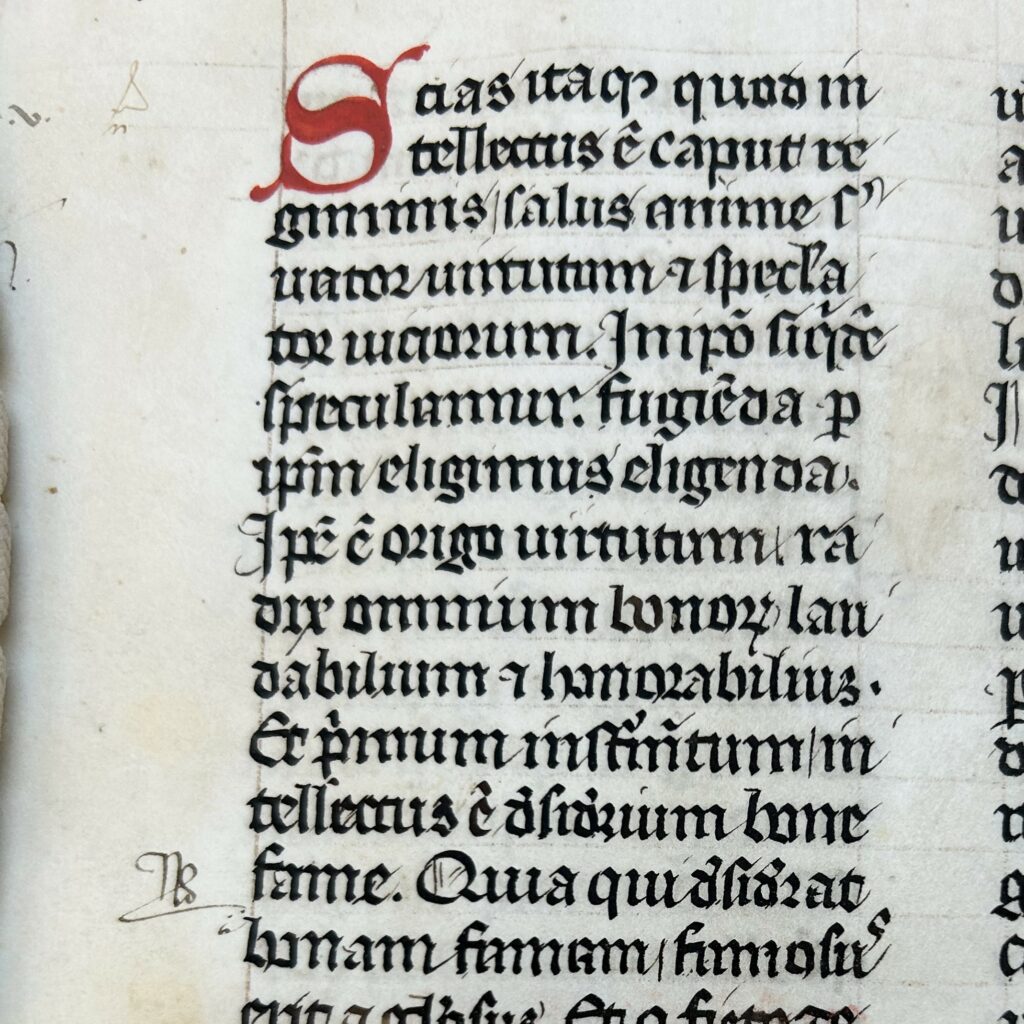 Scias itaqꝫ quod in
tellectus ē caput re
giminis / salus anime ẜ
uator uirtutum ⁊ specl̓a
tor uiciorum. In ip̄o siq̇dē
speculamur. fugiēda ꝑ
ip̄m eligimus eligenda.
Ip̄e ē origo uirtutum / ra
dix omnium bonoꝝ lau
dabilium ⁊ honorabiliuꝫ.
Et pͥmum inst̓m̄tum / in
tellectus ē d̓sid̓rium bone
fame. Quia qui d̓sid̓rat
bonam famam / famosuˢ
erit ⁊ gl̓osus. Et q ficto de
Nͣ